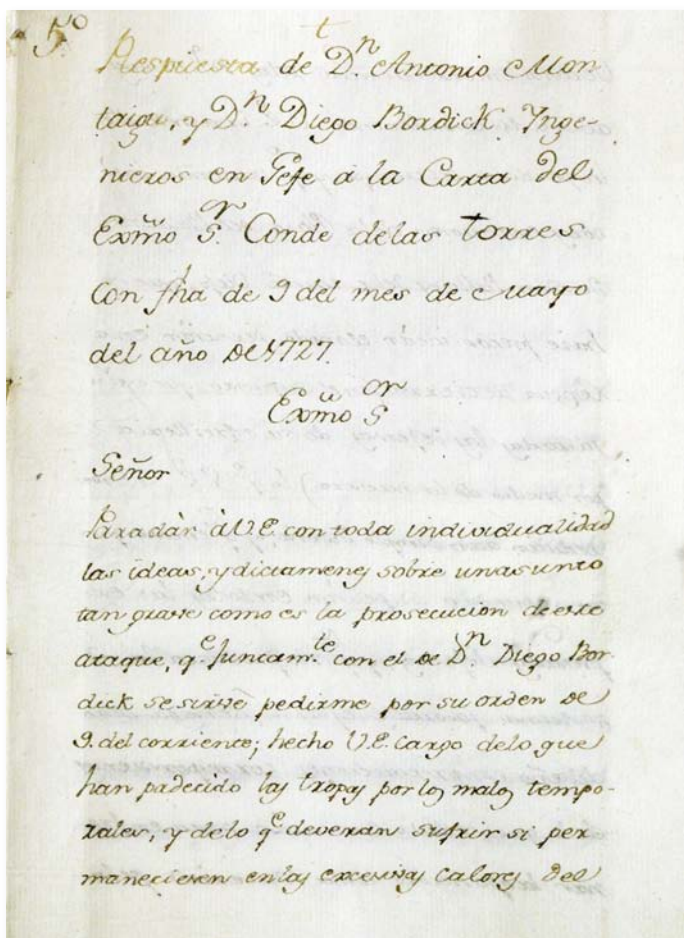 5º
t
Respuesta de D.n Antonio Mon
taigu, y D.n Diego Bordick Ynge-
nieros en Gefe à la Carta del
Exmo S.or Conde delas Torres
con fha de 9 del mes de Mayo
del año de 1727.
Exmo S.or
Señor
Para dàr à V.E. con toda individualidad
las ideas, y dictamenes sobre un asunto
tan grave como es la prosecucion de este
ataque, q.e juntam.te con el de D.n Diego Bor
dick se sirve pedirme por su orden de
9. del corriente; hecho V.E. cargo delo que
han padecido las tropas por los malos tempo-
rales, y delo q.e deveran sufrir si per
manecieren en las excesivas calores del